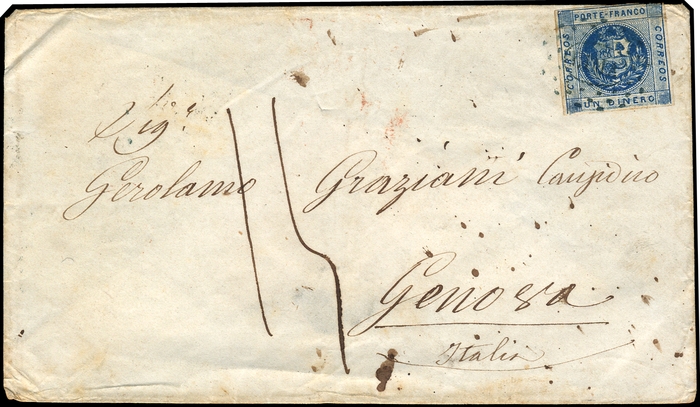 PORTE-FRANCO
CORREOS
CORREOS
UN DINERO
Sig.r
Gerolamo Graziani Causidico
Genova
Italia